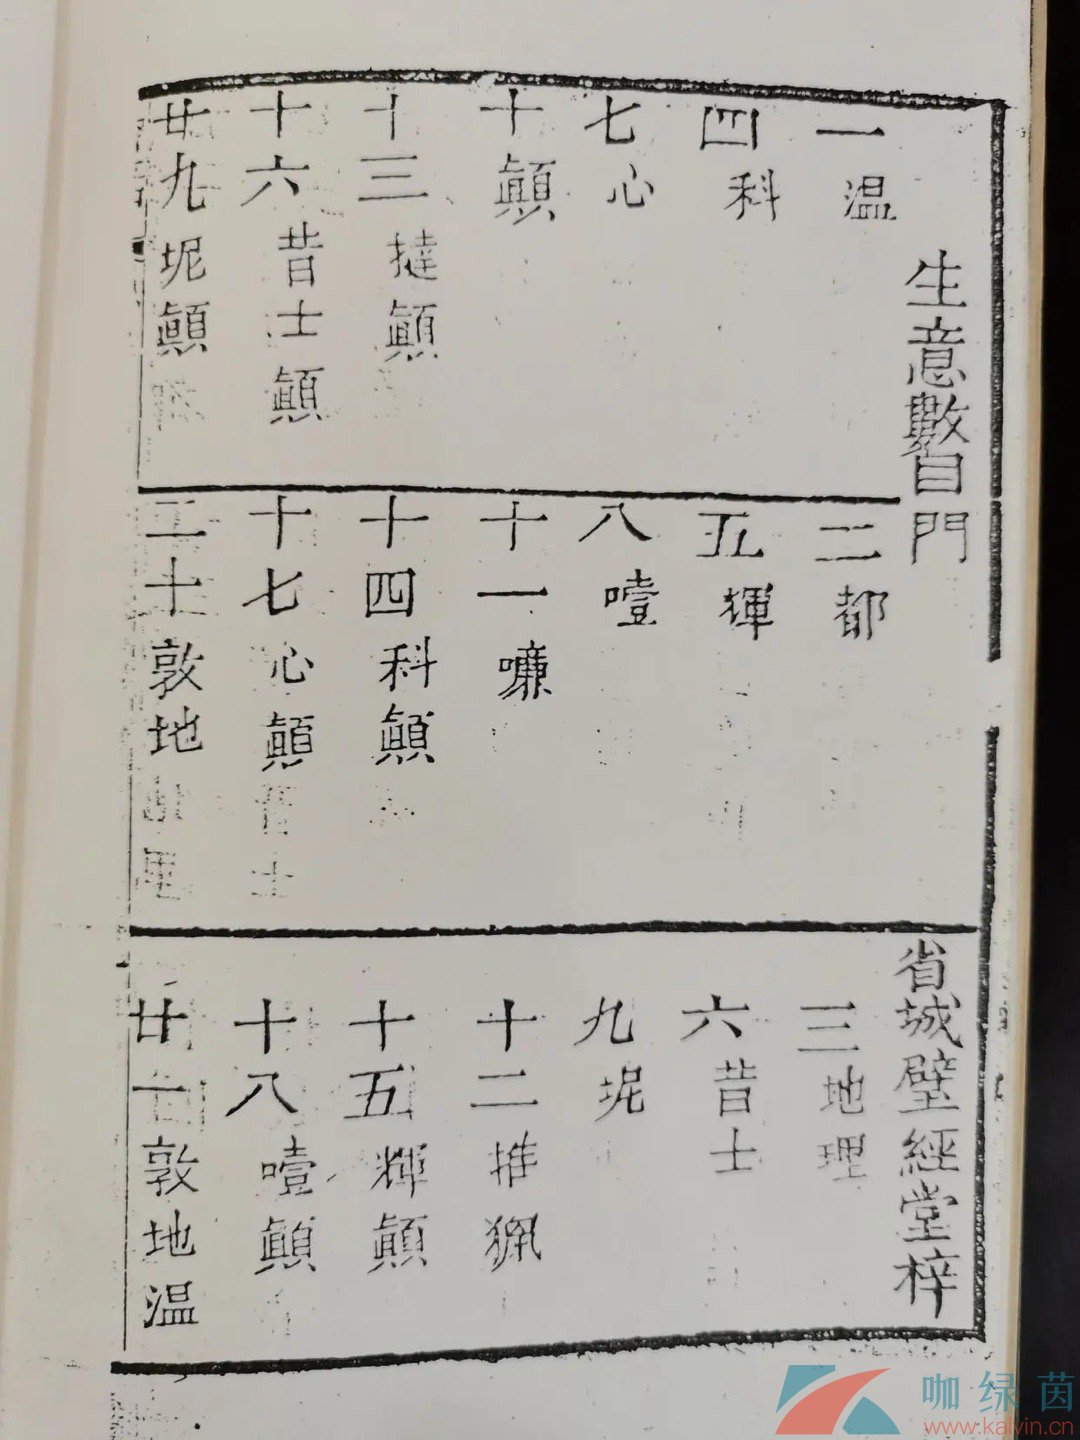 生意數目門
省城璧經堂梓
一温
二都
三地理
四科
五
六昔士
七心
八噎
九坭
十顛
十一
十二推
十三撻顛
十四科顛
十五輝顛
十六昔士顛
十七心顛
十八噎顛
廿九坭顛
二十敦地
廿一敦地温
咖绿茵
www.kalvin.cn